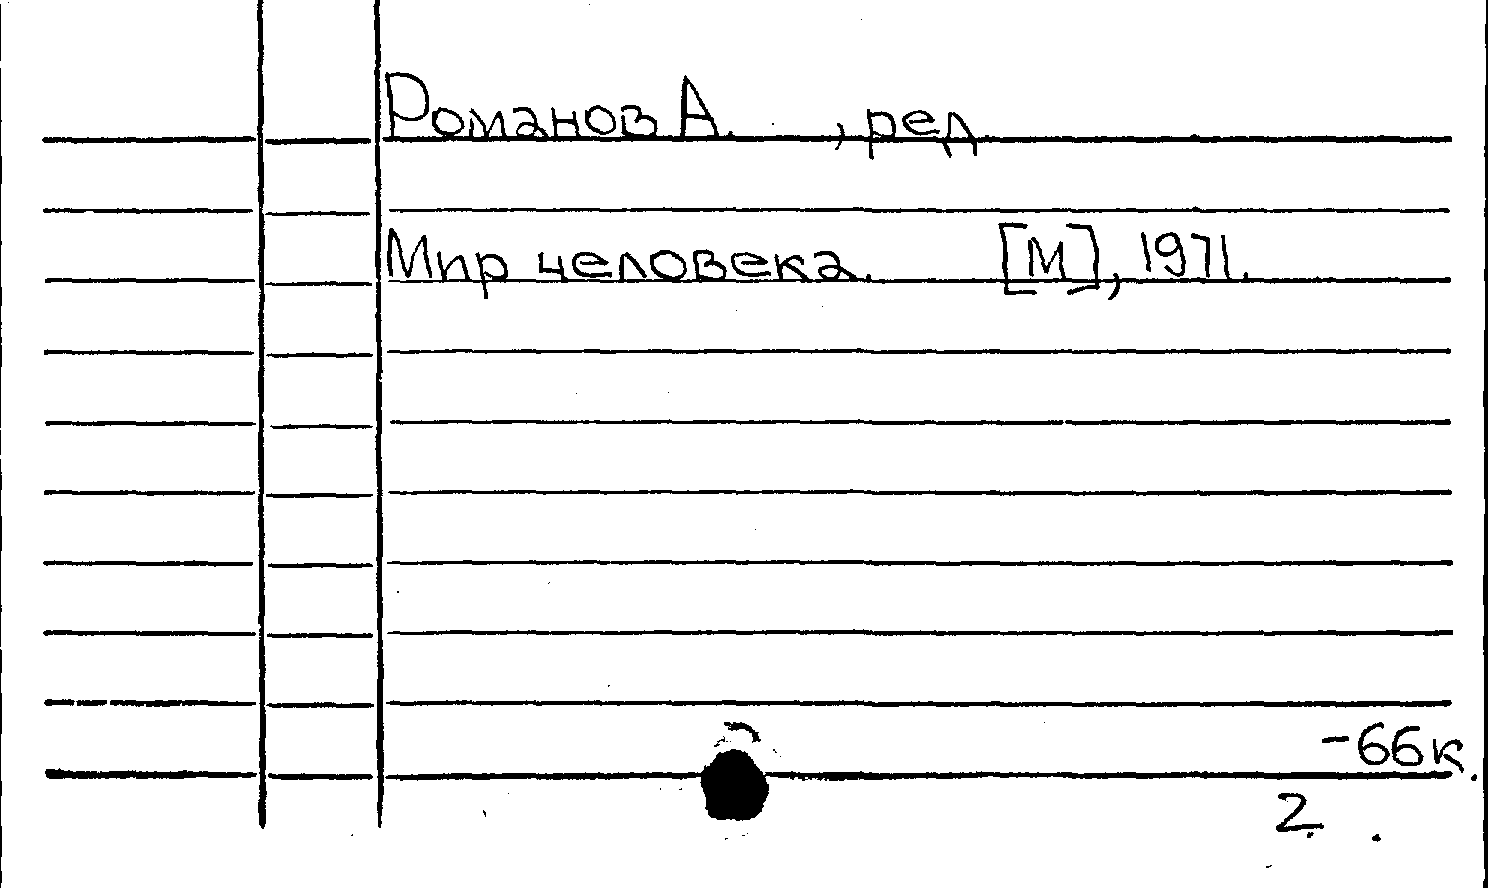 Романов А. , ред
Мир человека. [М], 1971.
-66к.
2.